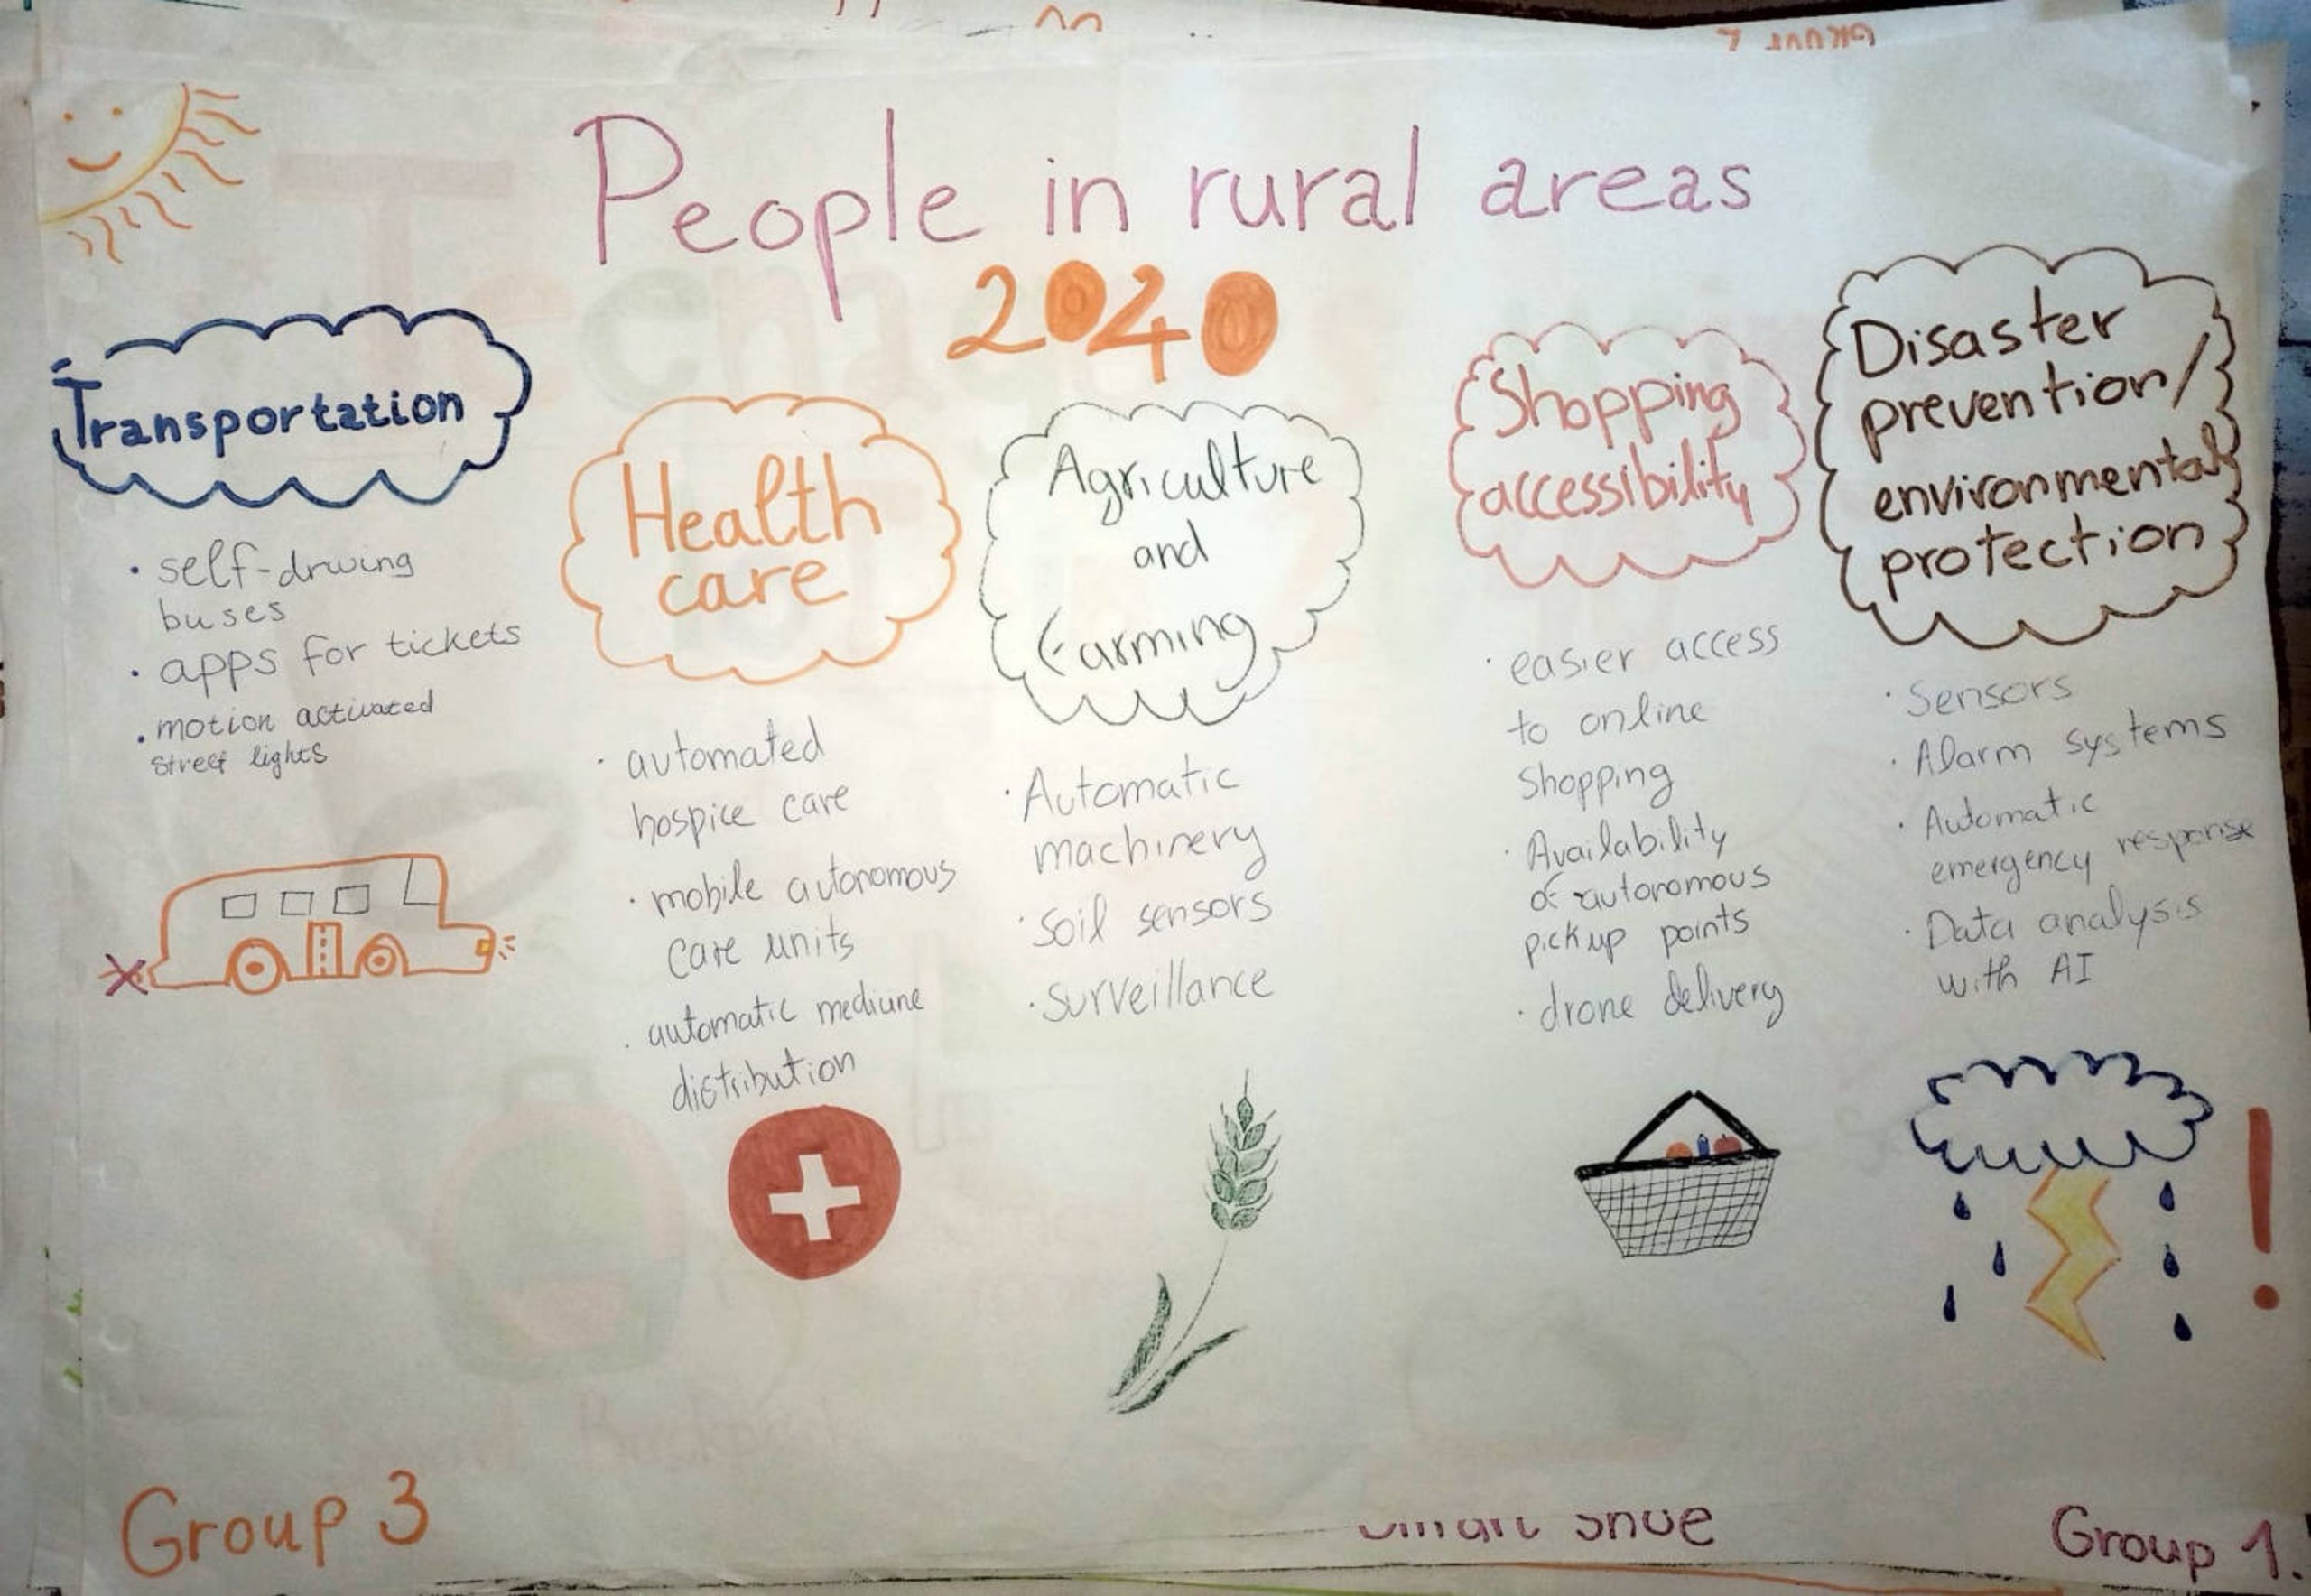 People in rural areas
2040
Transportation
• self-driving
buses
• apps for tickets
• motion activated
street lights
Health
care
• automated
hospice care
• mobile autonomous
care units
• automatic medicine
distribution
Agriculture
and
Farming
• Automatic
machinery
• Soil sensors
• surveillance
Shopping
accessibility
• easier access
to online
shopping
• Availability
of autonomous
pick up points
• drone delivery
Disaster
prevention/
environmental
protection
• Sensors
• Alarm systems
• Automatic
emergency response
• Data analysis
with AI
!
Group 3
Smart Shoe
Group 1.